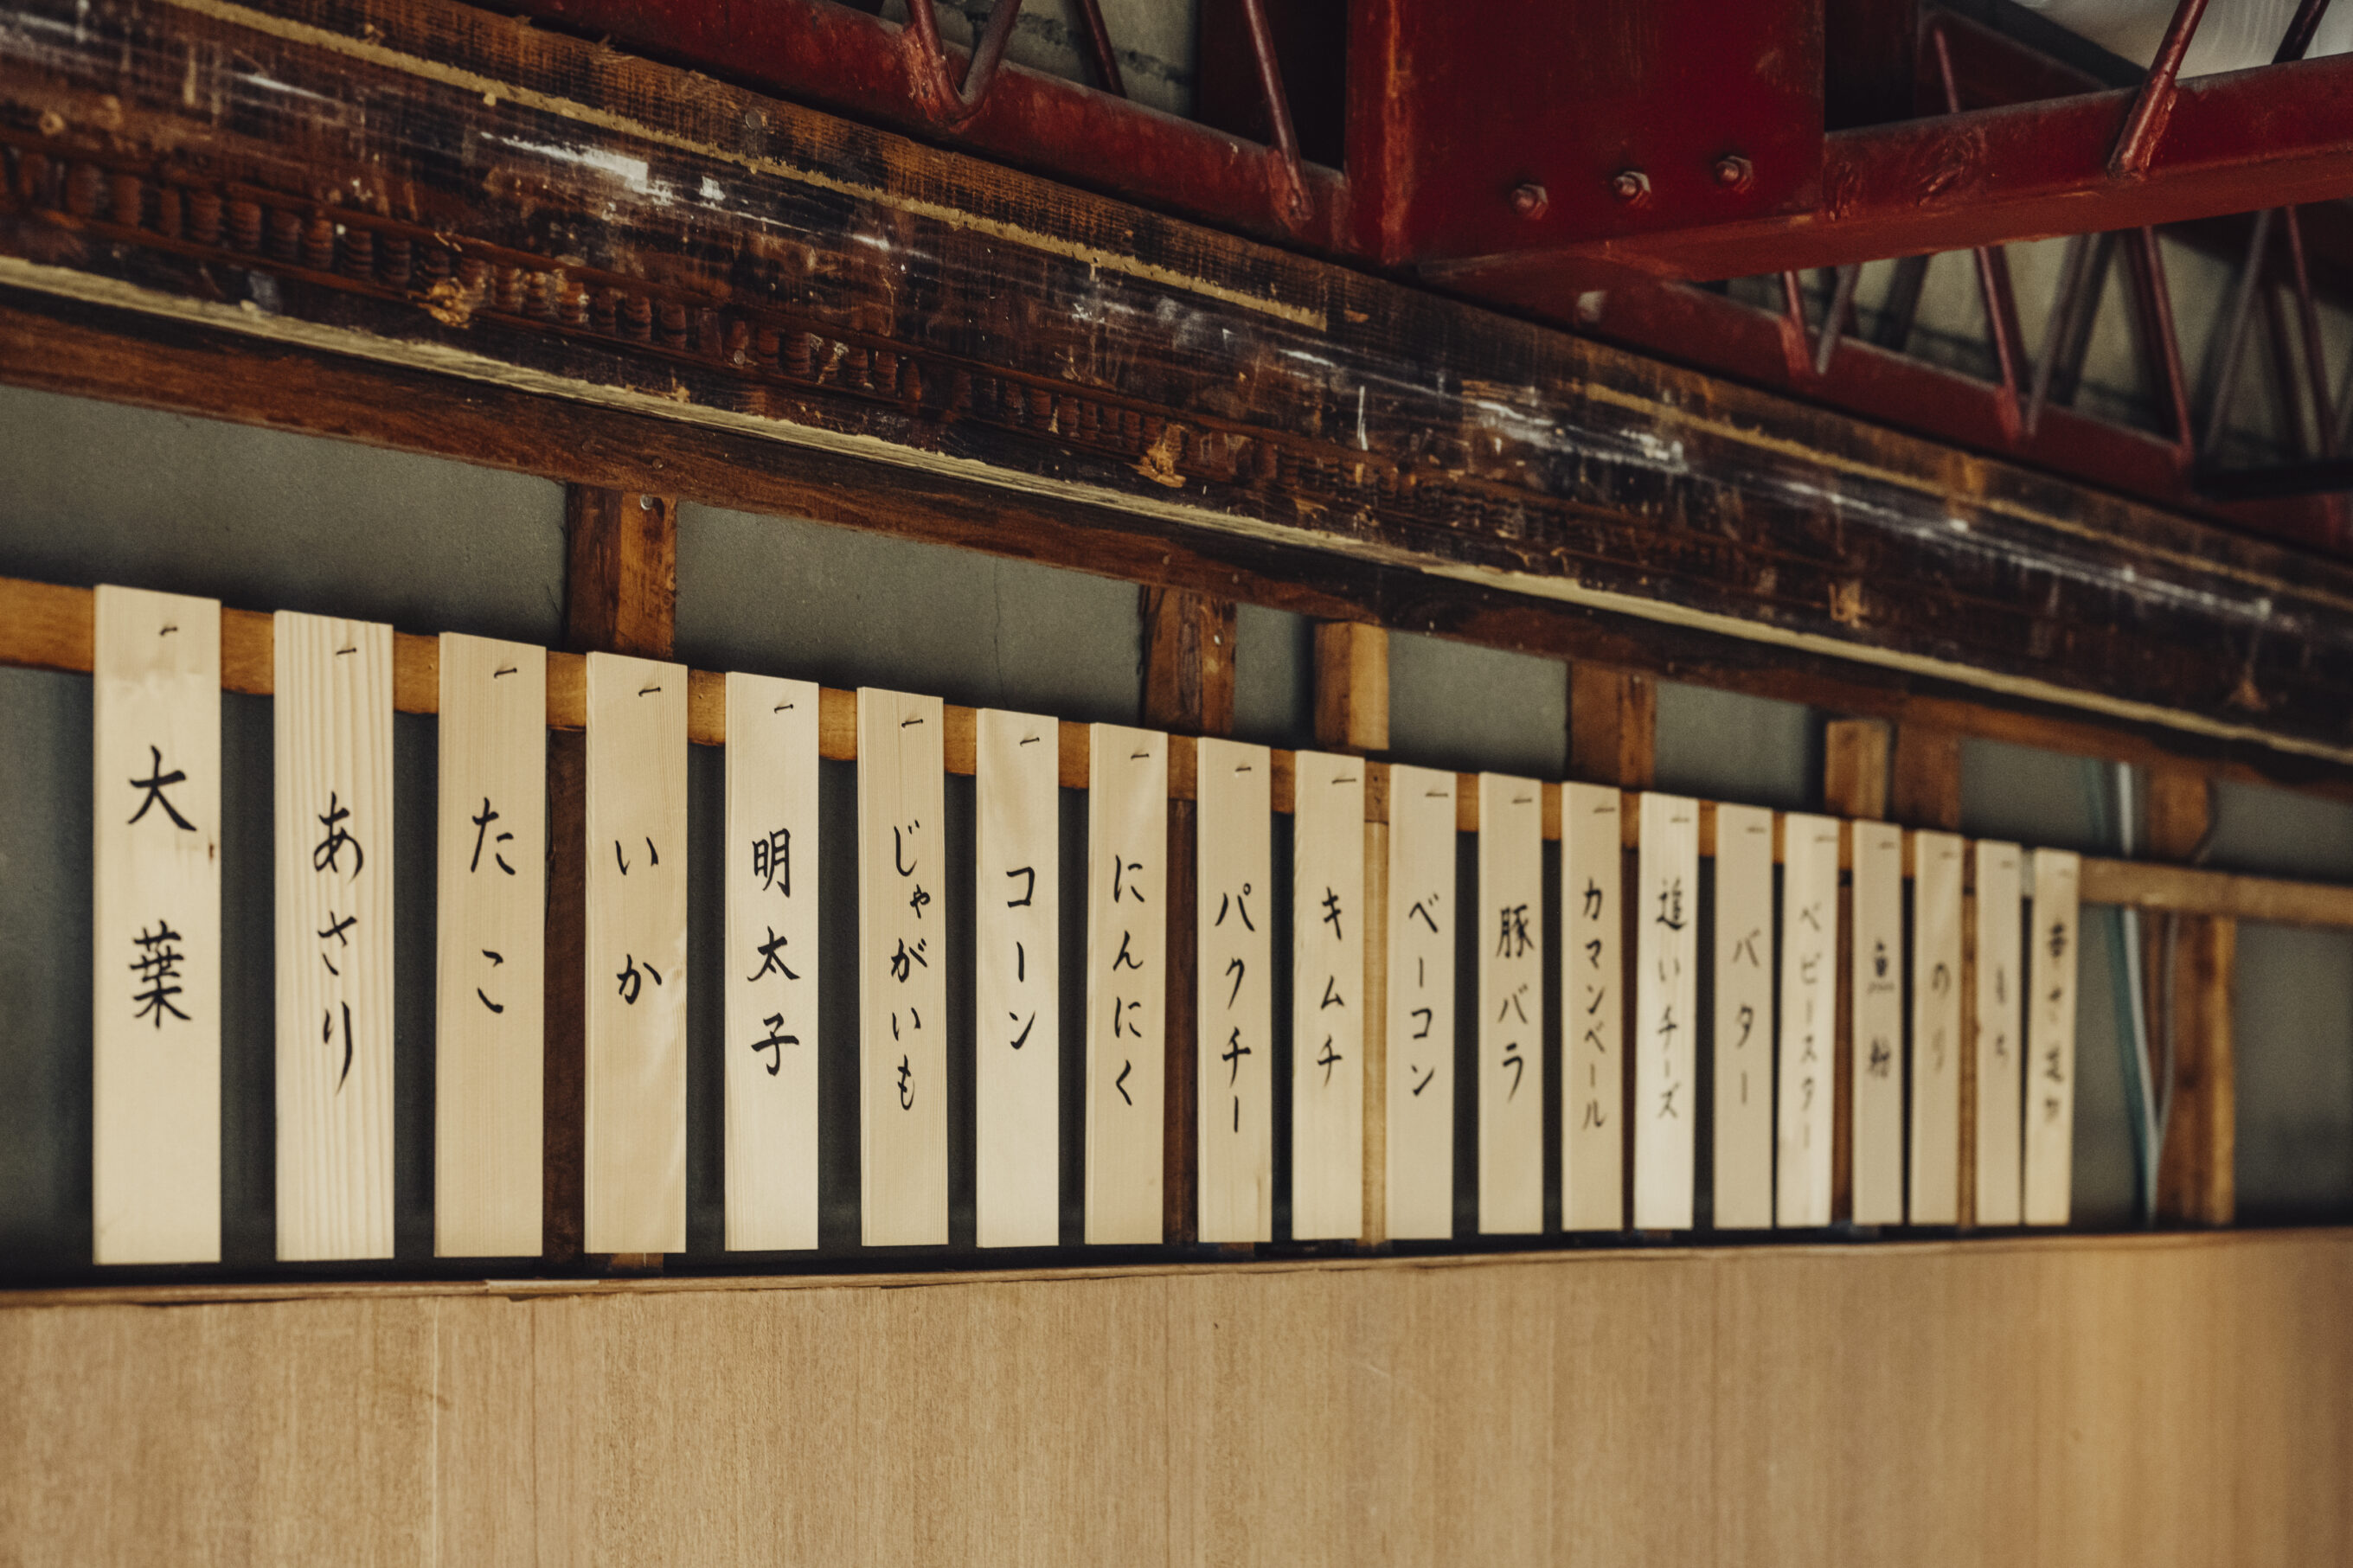 大葉
あさり
たこ
いか
明太子
じゃがいも
コーン
にんにく
パクチー
キムチ
ベーコン
豚バラ
カマンベール
追いチーズ
バター
ベビースター
魚粉
のり
もち